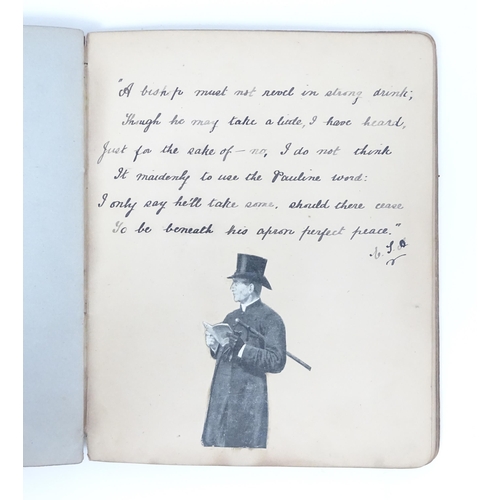 "A bishop must not revel in strong drink;
Though he may take a little, I have heard,
Just for the sake of — no, I do not think
It maidenly to use the Pauline word:
I only say he'll take some, should there cease
To be beneath his apron perfect peace."